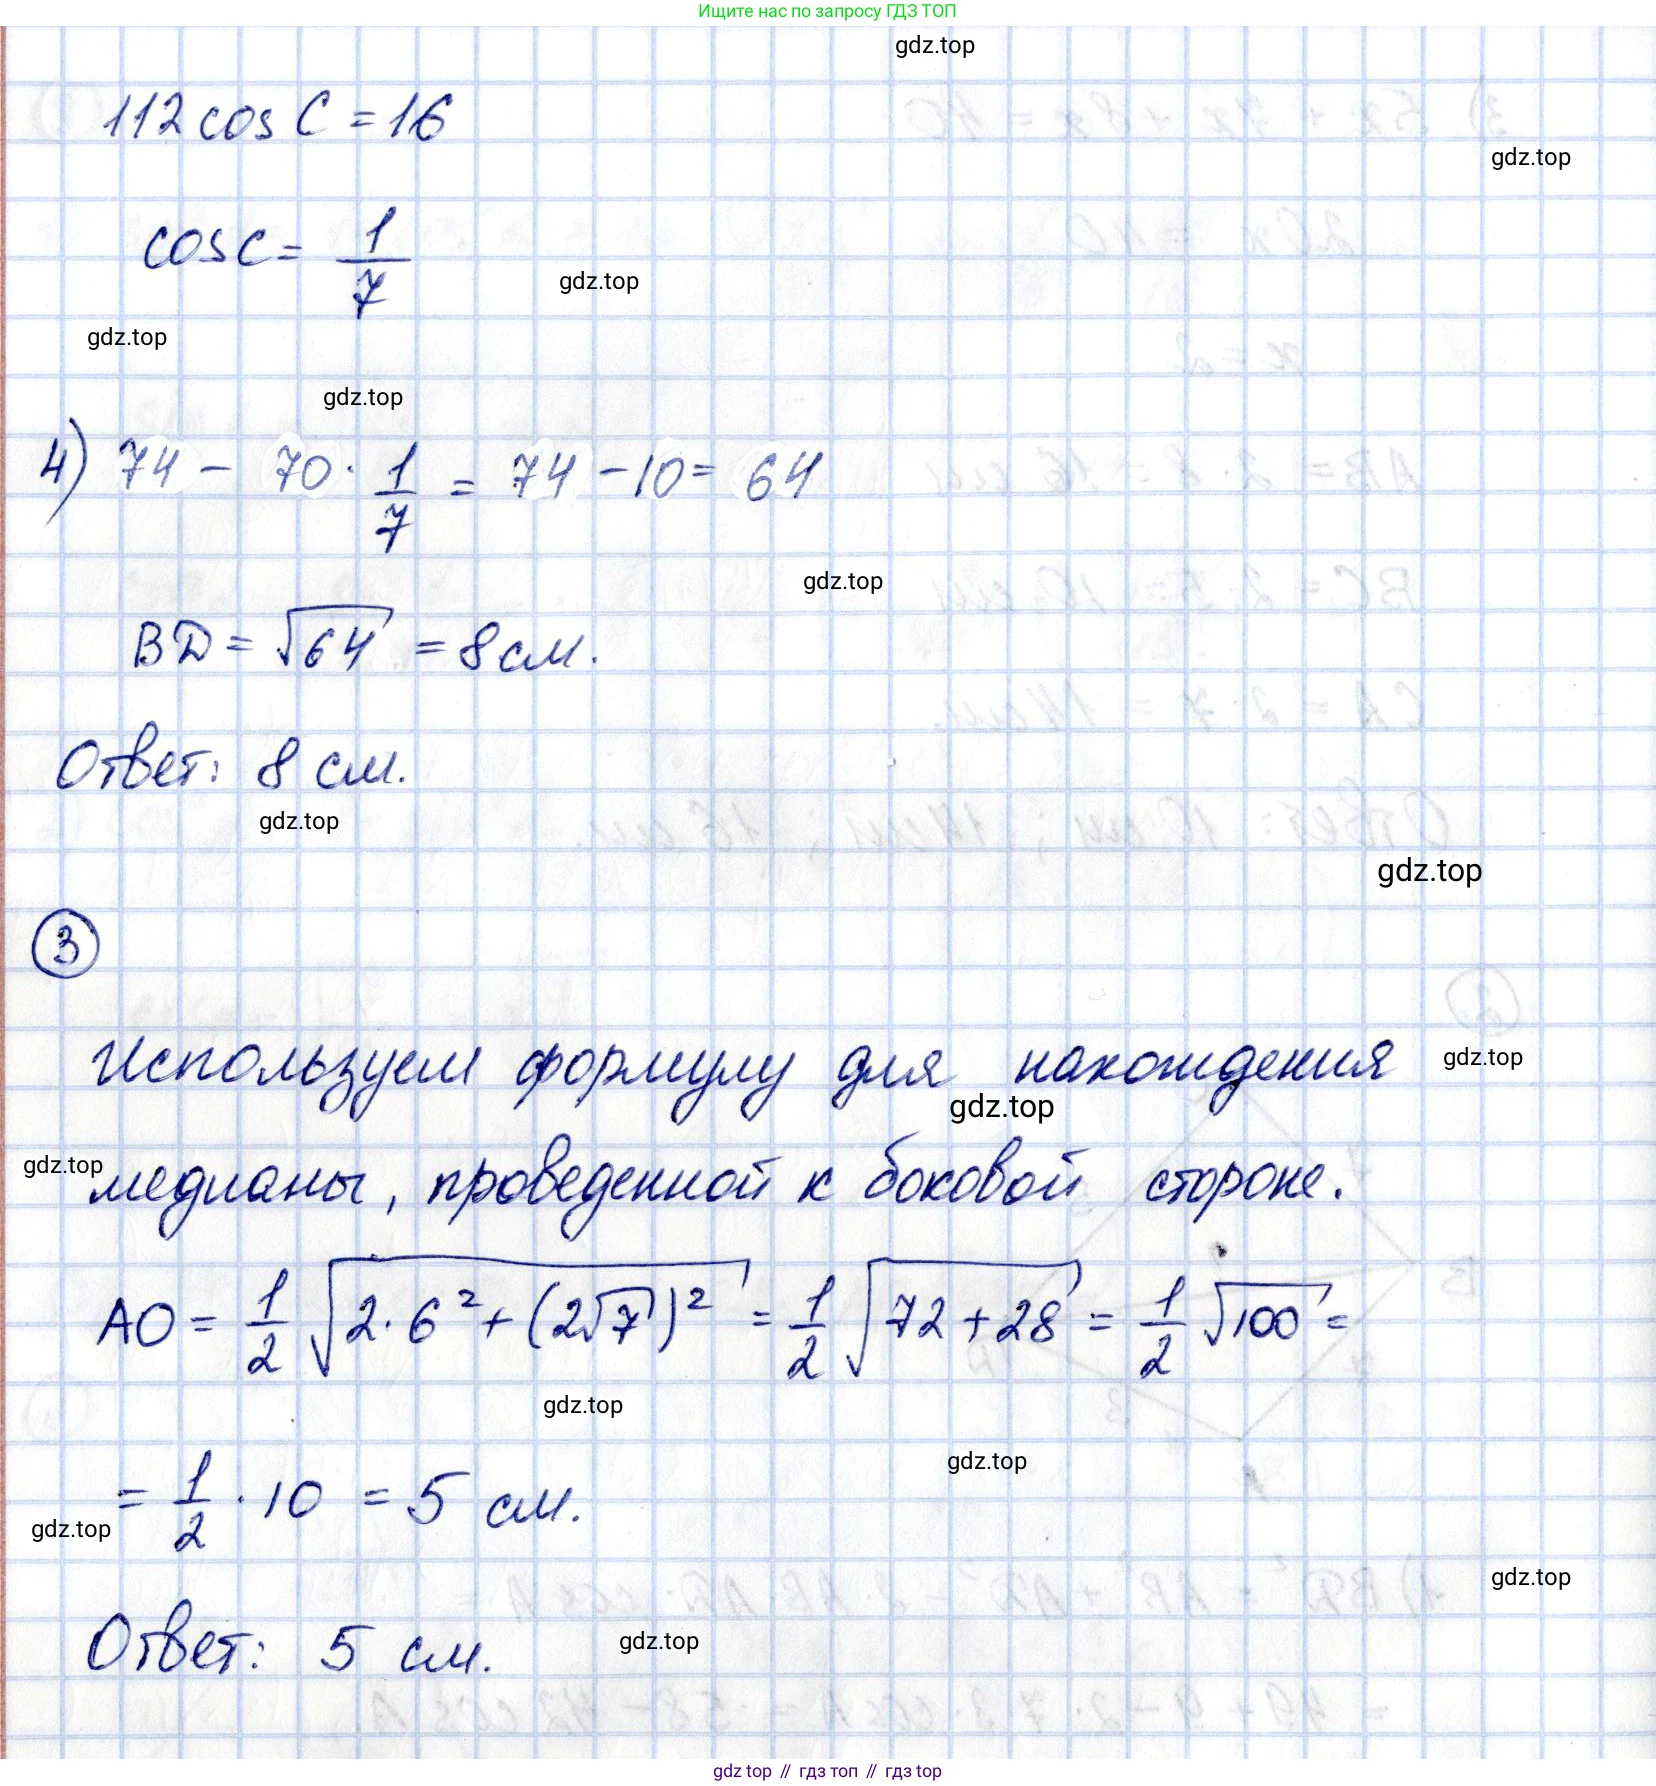 Ищите нас по запросу ГДЗ ТОП
gdz.top
112 cos C = 16
gdz.top
cos C = 1/7
gdz.top
gdz.top
gdz.top
4) 74 - 70 · 1/7 = 74 - 10 = 64
gdz.top
BD = √64 = 8 см.
Ответ: 8 см.
gdz.top
gdz.top
3
Используем формулу для нахождения
gdz.top
gdz.top
gdz.top
медианы, проведенной к боковой стороне.
AO = 1/2 √(2·6² + (2√7)²) = 1/2 √(72 + 28) = 1/2 √100 =
gdz.top
gdz.top
= 1/2 · 10 = 5 см.
gdz.top
gdz.top
Ответ: 5 см.
gdz.top
gdz top // гдз топ // гдз top